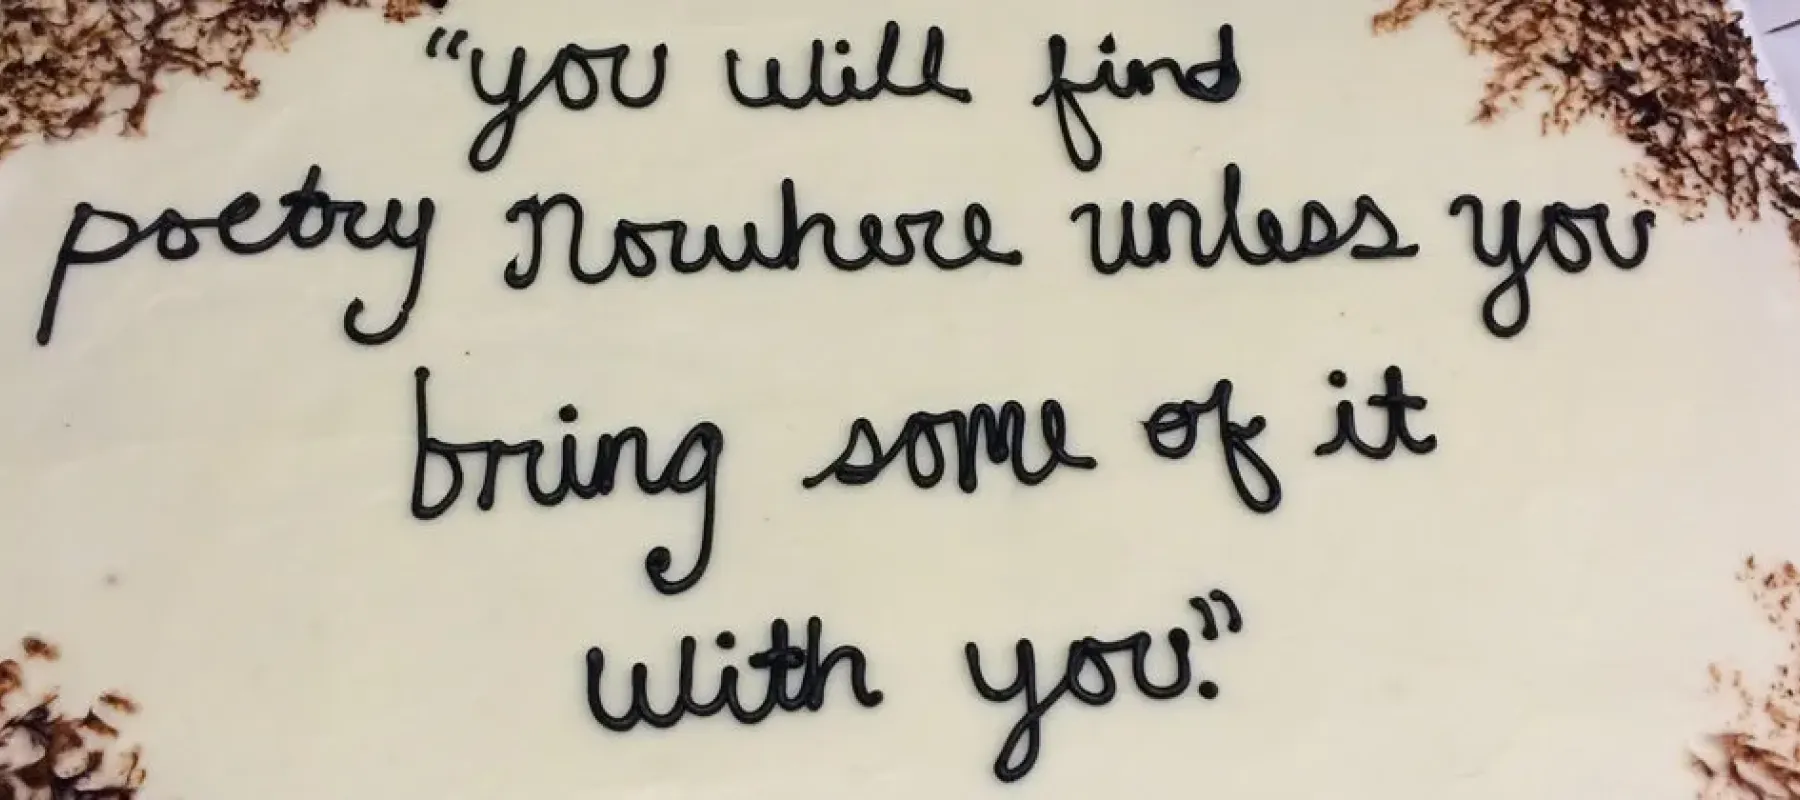 "you will find
poetry nowhere unless you
bring some of it
with you."